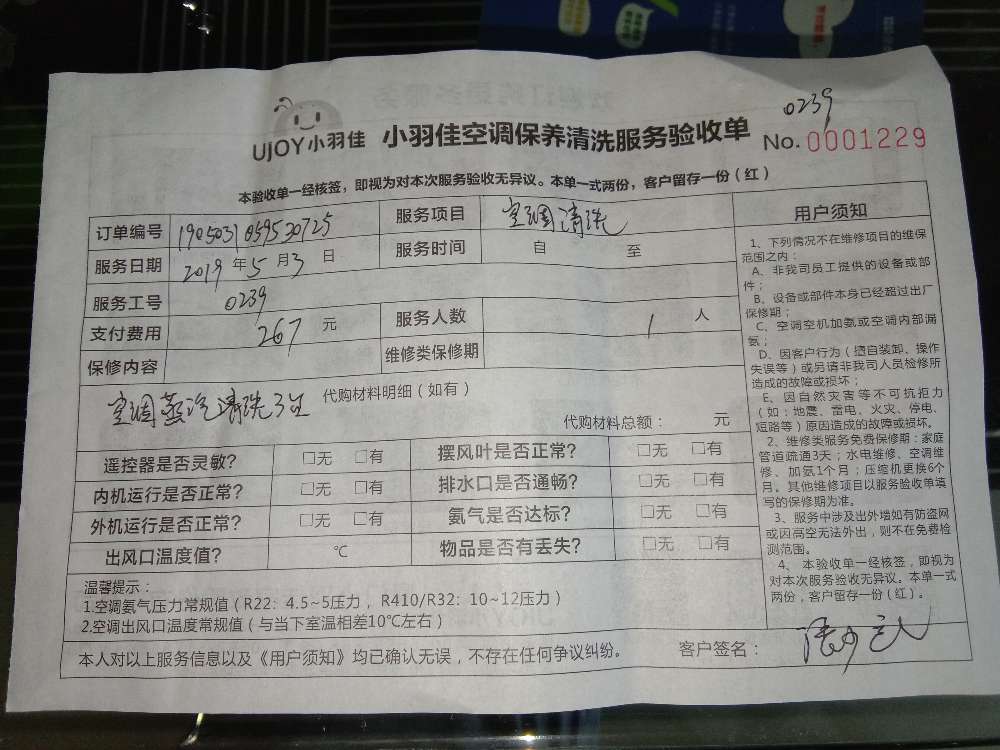 0239
UJOY小羽佳 小羽佳空调保养清洗服务验收单 No. 0001229
本验收单一经核签，即视为对本次服务验收无异议。本单一式两份，客户留存一份（红）
订单编号 1905031059530725 服务项目 空调清洗
服务日期 2019 年 5 月 3 日 服务时间 自 至
服务工号 0239
支付费用 267 元 服务人数 1 人
保修内容 维修类保修期
空调蒸汽清洗 代购材料明细（如有）
代购材料总额： 元
遥控器是否灵敏？ □无 □有 摆风叶是否正常？ □无 □有
内机运行是否正常？ □无 □有 排水口是否通畅？ □无 □有
外机运行是否正常？ □无 □有 氨气是否达标？ □无 □有
出风口温度值？ ℃ 物品是否有丢失？ □无 □有
温馨提示：
1.空调氨气压力常规值（R22：4.5~5压力，R410/R32：10~12压力）
2.空调出风口温度常规值（与当下室温相差10℃左右）
本人对以上服务信息以及《用户须知》均已确认无误，不存在任何争议纠纷。 客户签名：
用户须知
1、下列情况不在维修项目的维保
范围之内：
A、非我司员工提供的设备或部
件；
B、设备或部件本身已经超过出厂
保修期；
C、空调空机加氨或空调内部漏
氨；
D、因客户行为（擅自装卸、操作
失误等）或另请非我司人员检修所
造成的故障或损坏；
E、因自然灾害等不可抗拒力
（如：地震、雷电、火灾、停电、
短路等）原因造成的故障或损坏。
2、维修类服务免费保修期：家庭
管道疏通3天；水电维修、空调维
修、加氨1个月；压缩机更换6个
月。其他维修项目以服务验收单填
写的保修期为准。
3、服务中涉及出外增如有防盗网
或因高空无法外出，则不在免费检
测范围。
4、本验收单一经核签，即视为
对本次服务验收无异议。本单一式
两份，客户留存一份（红）。